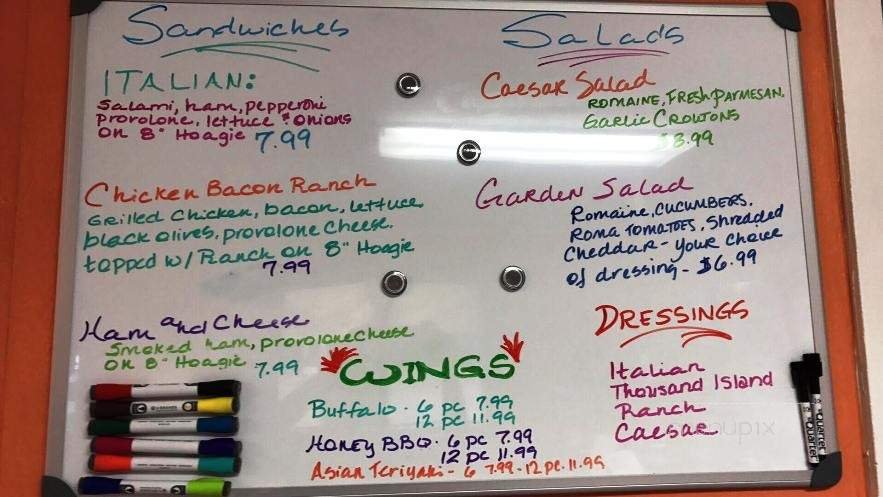 Sandwiches
ITALIAN:
Salami, ham, pepperoni
Provolone, lettuce & onions
on 8" Hoagie 7.99
Chicken Bacon Ranch
Grilled Chicken, bacon, lettuce
black olives, provolone cheese.
topped w/ Ranch on 8" Hoagie
7.99
Ham and Cheese
Smoked ham, provolone cheese
on 8" Hoagie 7.99
WINGS
Buffalo - 6 pc 7.99
12 pc 11.99
Honey BBQ - 6 pc 7.99
12 pc 11.99
Asian Teriyaki - 6 7.99 - 12 pc. 11.99
Salads
Caesar Salad
ROMAINE, FRESH PARMESAN,
Garlic CROUTONS
$8.99
Garden Salad
Romaine, CUCUMBERS,
ROMA TOMATOES, Shredded
Cheddar - your choice
of dressing - $6.99
DRESSINGS
Italian
Thousand Island
Ranch
Caesar
Quartet
Quartet